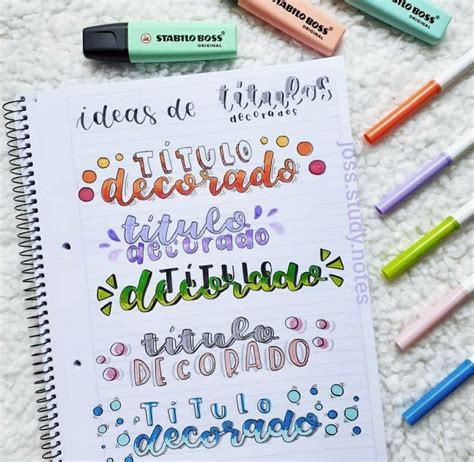 STABILO BOSS
ORIGINAL
STABILO BOSS
ORIGINAL
STABILO BOSS
ORIGINAL
ideas de títulos
decorados
TÍTULO
decorado
título
decorado
TÍTULO
decorado
título
DECORADO
TÍTULO
decorado
joss.study.notes